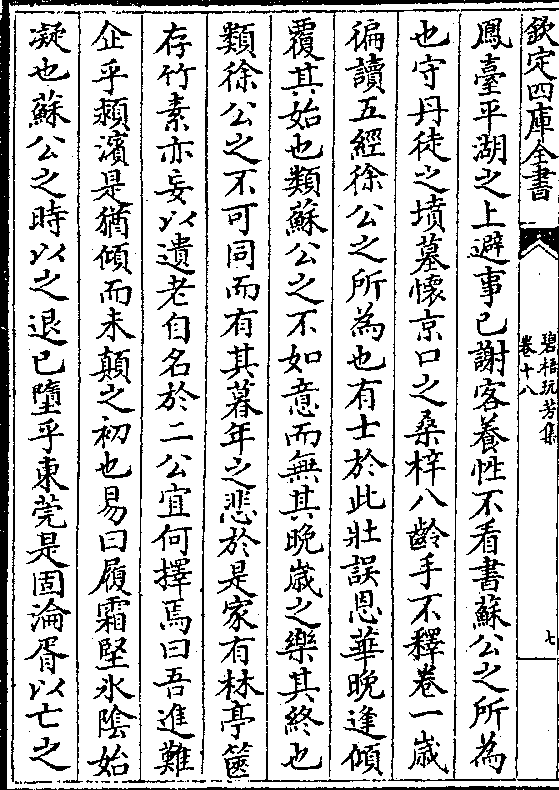 欽定四庫全書
碧梧玩芳集
卷十八
七
鳳臺平湖之上避事已謝客養性不看書蘇公之所為
也守丹徒之墳墓懷京口之桑梓八齡手不釋卷一歲
徧讀五經徐公之所為也有士於此壯誤恩華晚逢傾
覆其始也類蘇公之不如意而無其晚歲之樂其終也
類徐公之不可同而有其暮年之悲於是家有林亭篋
存竹素亦妄以遺老自名於二公宜何擇焉曰吾進難
企乎潁濱是猶傾而未顛之初也易曰履霜堅氷陰始
凝也蘇公之時以之退已墮乎東莞是固淪胥以亡之